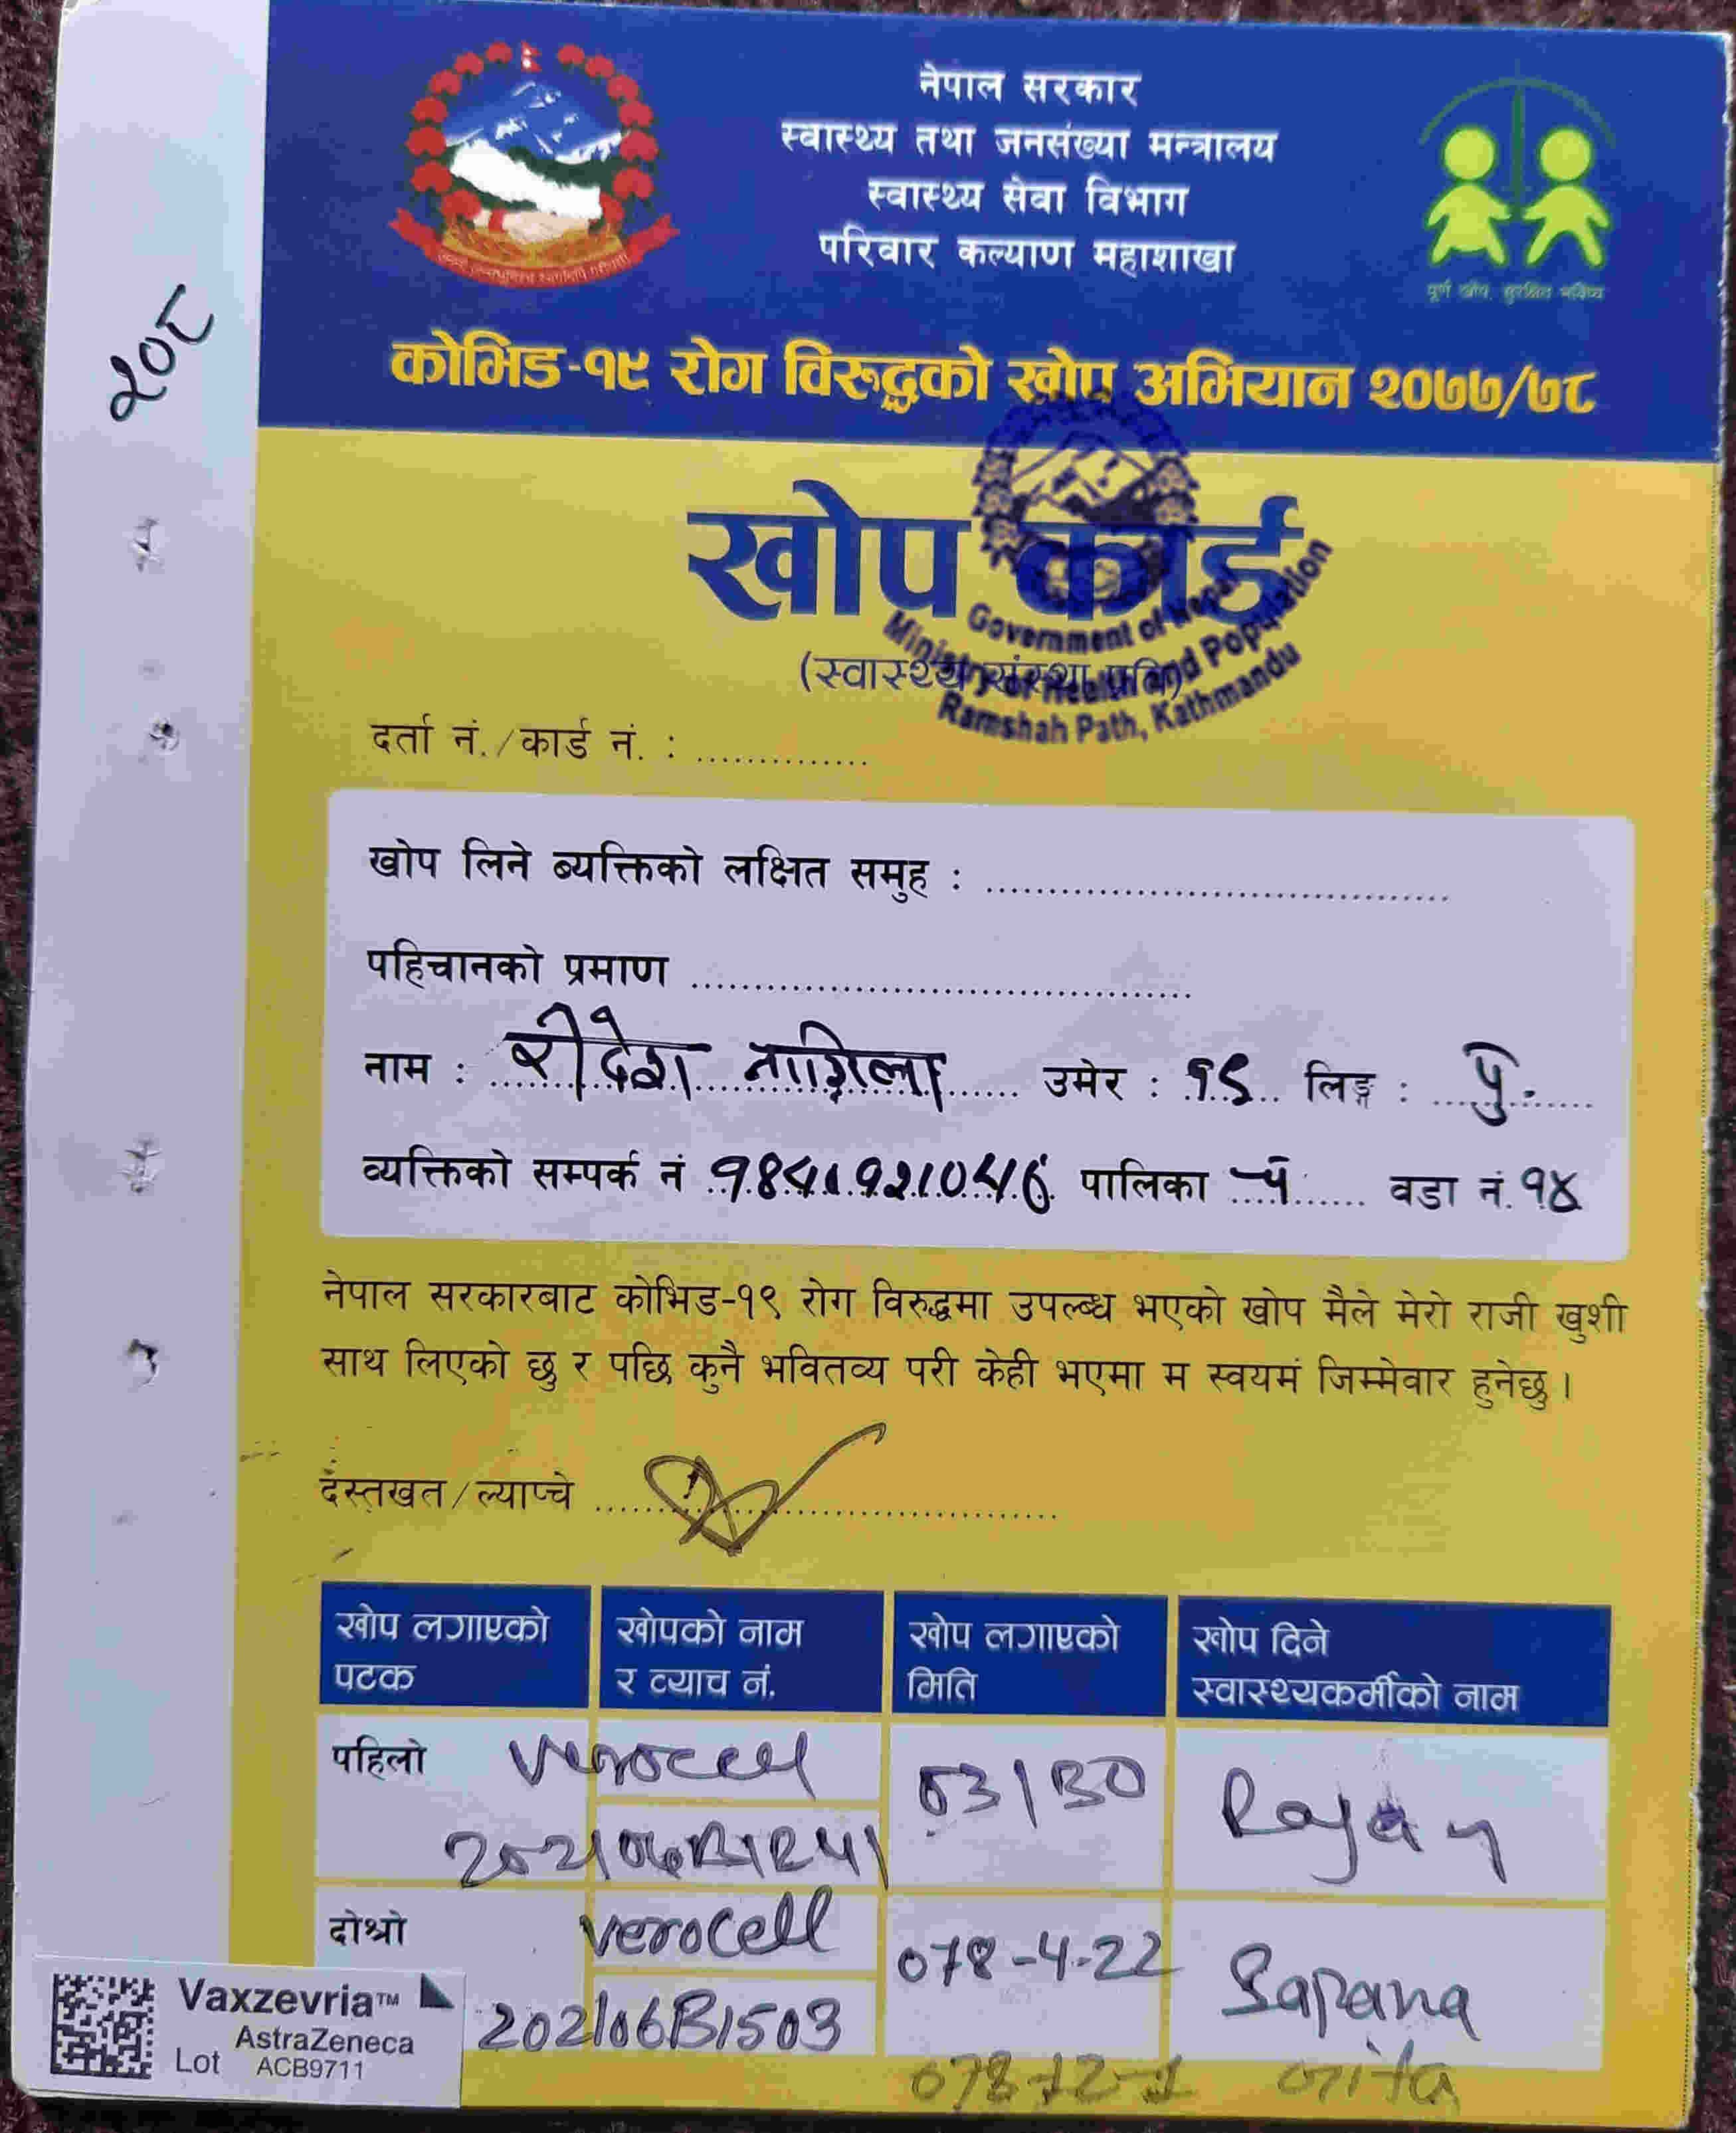 नेपाल सरकार
स्वास्थ्य तथा जनसंख्या मन्त्रालय
स्वास्थ्य सेवा विभाग
परिवार कल्याण महाशाखा
पूर्ण खोप, सुरक्षित भविष्य
२०८
कोभिड-१९ रोग विरुद्धको खोप अभियान २०७७/७८
खोप कार्ड
(स्वास्थ्य संस्था प्रति)
Government of Nepal
Ministry of Health and Population
Ramshah Path, Kathmandu
दर्ता नं./कार्ड नं. : ..............
खोप लिने ब्यक्तिको लक्षित समुह : ......................................
पहिचानको प्रमाण .........................................
नाम : उमेर : १९ लिङ्ग : पु.
व्यक्तिको सम्पर्क नं 9841921046 पालिका वडा नं. १४
नेपाल सरकारबाट कोभिड-१९ रोग विरुद्धमा उपल्ब्ध भएको खोप मैले मेरो राजी खुशी
साथ लिएको छु र पछि कुनै भवितव्य परी केही भएमा म स्वयमं जिम्मेवार हुनेछु ।
दस्तखत/ल्याप्चे ......................................
खोप लगाएको पटक खोपको नाम र व्याच नं. खोप लगाएको मिति खोप दिने स्वास्थ्यकर्मीको नाम
पहिलो verocell 03/30 Rajan
दोश्रो verocell 078-4-22 Sapana
202106B1503
078-12-1
Vaxzevria™
AstraZeneca
Lot ACB9711